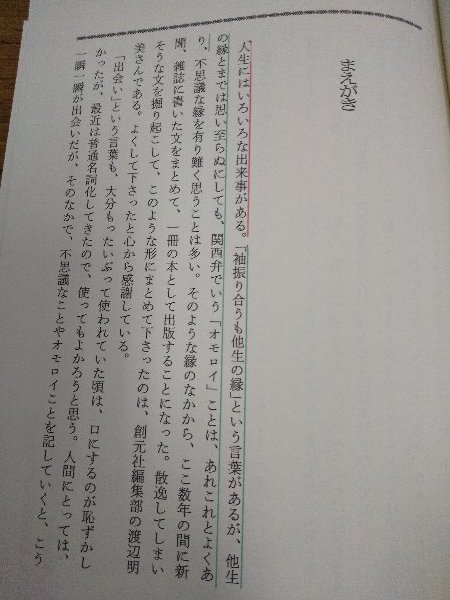 まえがき
人生にはいろいろな出来事がある。「袖振り合うも他生の縁」という言葉があるが、他生
の縁とまでは思い至らぬにしても、関西弁でいう「オモロイ」ことは、あれこれとよくあ
り、不思議な縁を有り難く思うことは多い。そのような縁のなかから、ここ数年の間に新
聞、雑誌に書いた文をまとめて、一冊の本として出版することになった。散逸してしまい
そうな文を掘り起こして、このような形にまとめて下さったのは、創元社編集部の渡辺明
美さんである。よくして下さったと心から感謝している。
「出会い」という言葉も、大分もったいぶって使われていた頃は、口にするのが恥ずかし
かったが、最近は普通名詞化してきたので、使ってもよかろうと思う。人間にとっては、
一瞬一瞬が出会いだが、そのなかで、不思議なことやオモロイことを記していくと、こう